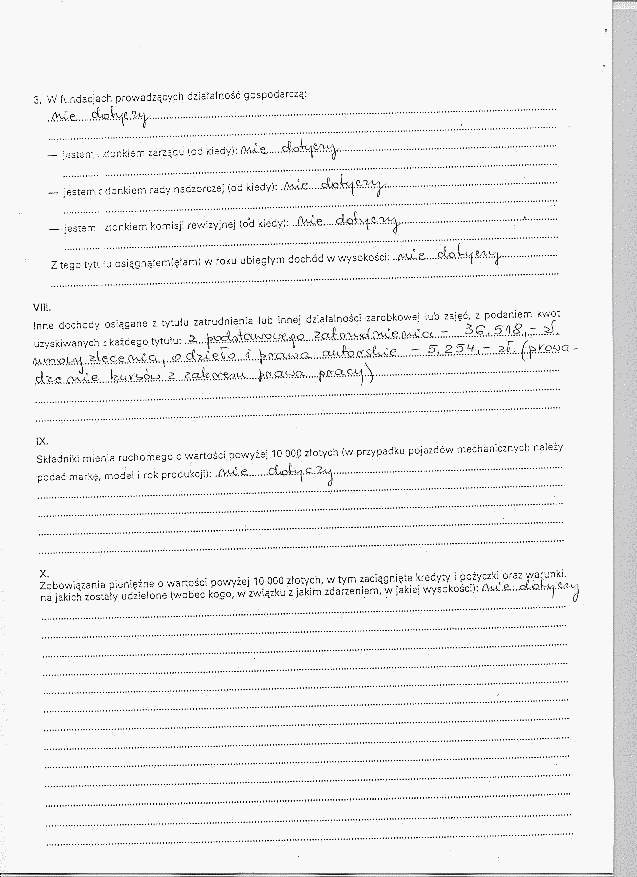 3. W fundacjach prowadzących działalność gospodarczą:
nie dotyczy
— jestem członkiem zarządu (od kiedy): nie dotyczy
— jestem członkiem rady nadzorczej (od kiedy): nie dotyczy
— jestem członkiem komisji rewizyjnej (od kiedy): nie dotyczy
Z tego tytułu osiągnąłem(ęłam) w roku ubiegłym dochód w wysokości: nie dotyczy
VIII.
Inne dochody osiągane z tytułu zatrudnienia lub innej działalności zarobkowej lub zajęć, z podaniem kwot
uzyskiwanych z każdego tytułu: z podstawowego zatrudnienia – 36.518,– zł.
umowy zlecenia, o dzieło i prawa autorskie – 5.254,– zł. (prowa-
dzenie kursów z zakresu prawa pracy)
IX.
Składniki mienia ruchomego o wartości powyżej 10 000 złotych (w przypadku pojazdów mechanicznych należy
podać markę, model i rok produkcji): nie dotyczy
X.
Zobowiązania pieniężne o wartości powyżej 10 000 złotych, w tym zaciągnięte kredyty i pożyczki oraz warunki,
na jakich zostały udzielone (wobec kogo, w związku z jakim zdarzeniem, w jakiej wysokości): nie dotyczy